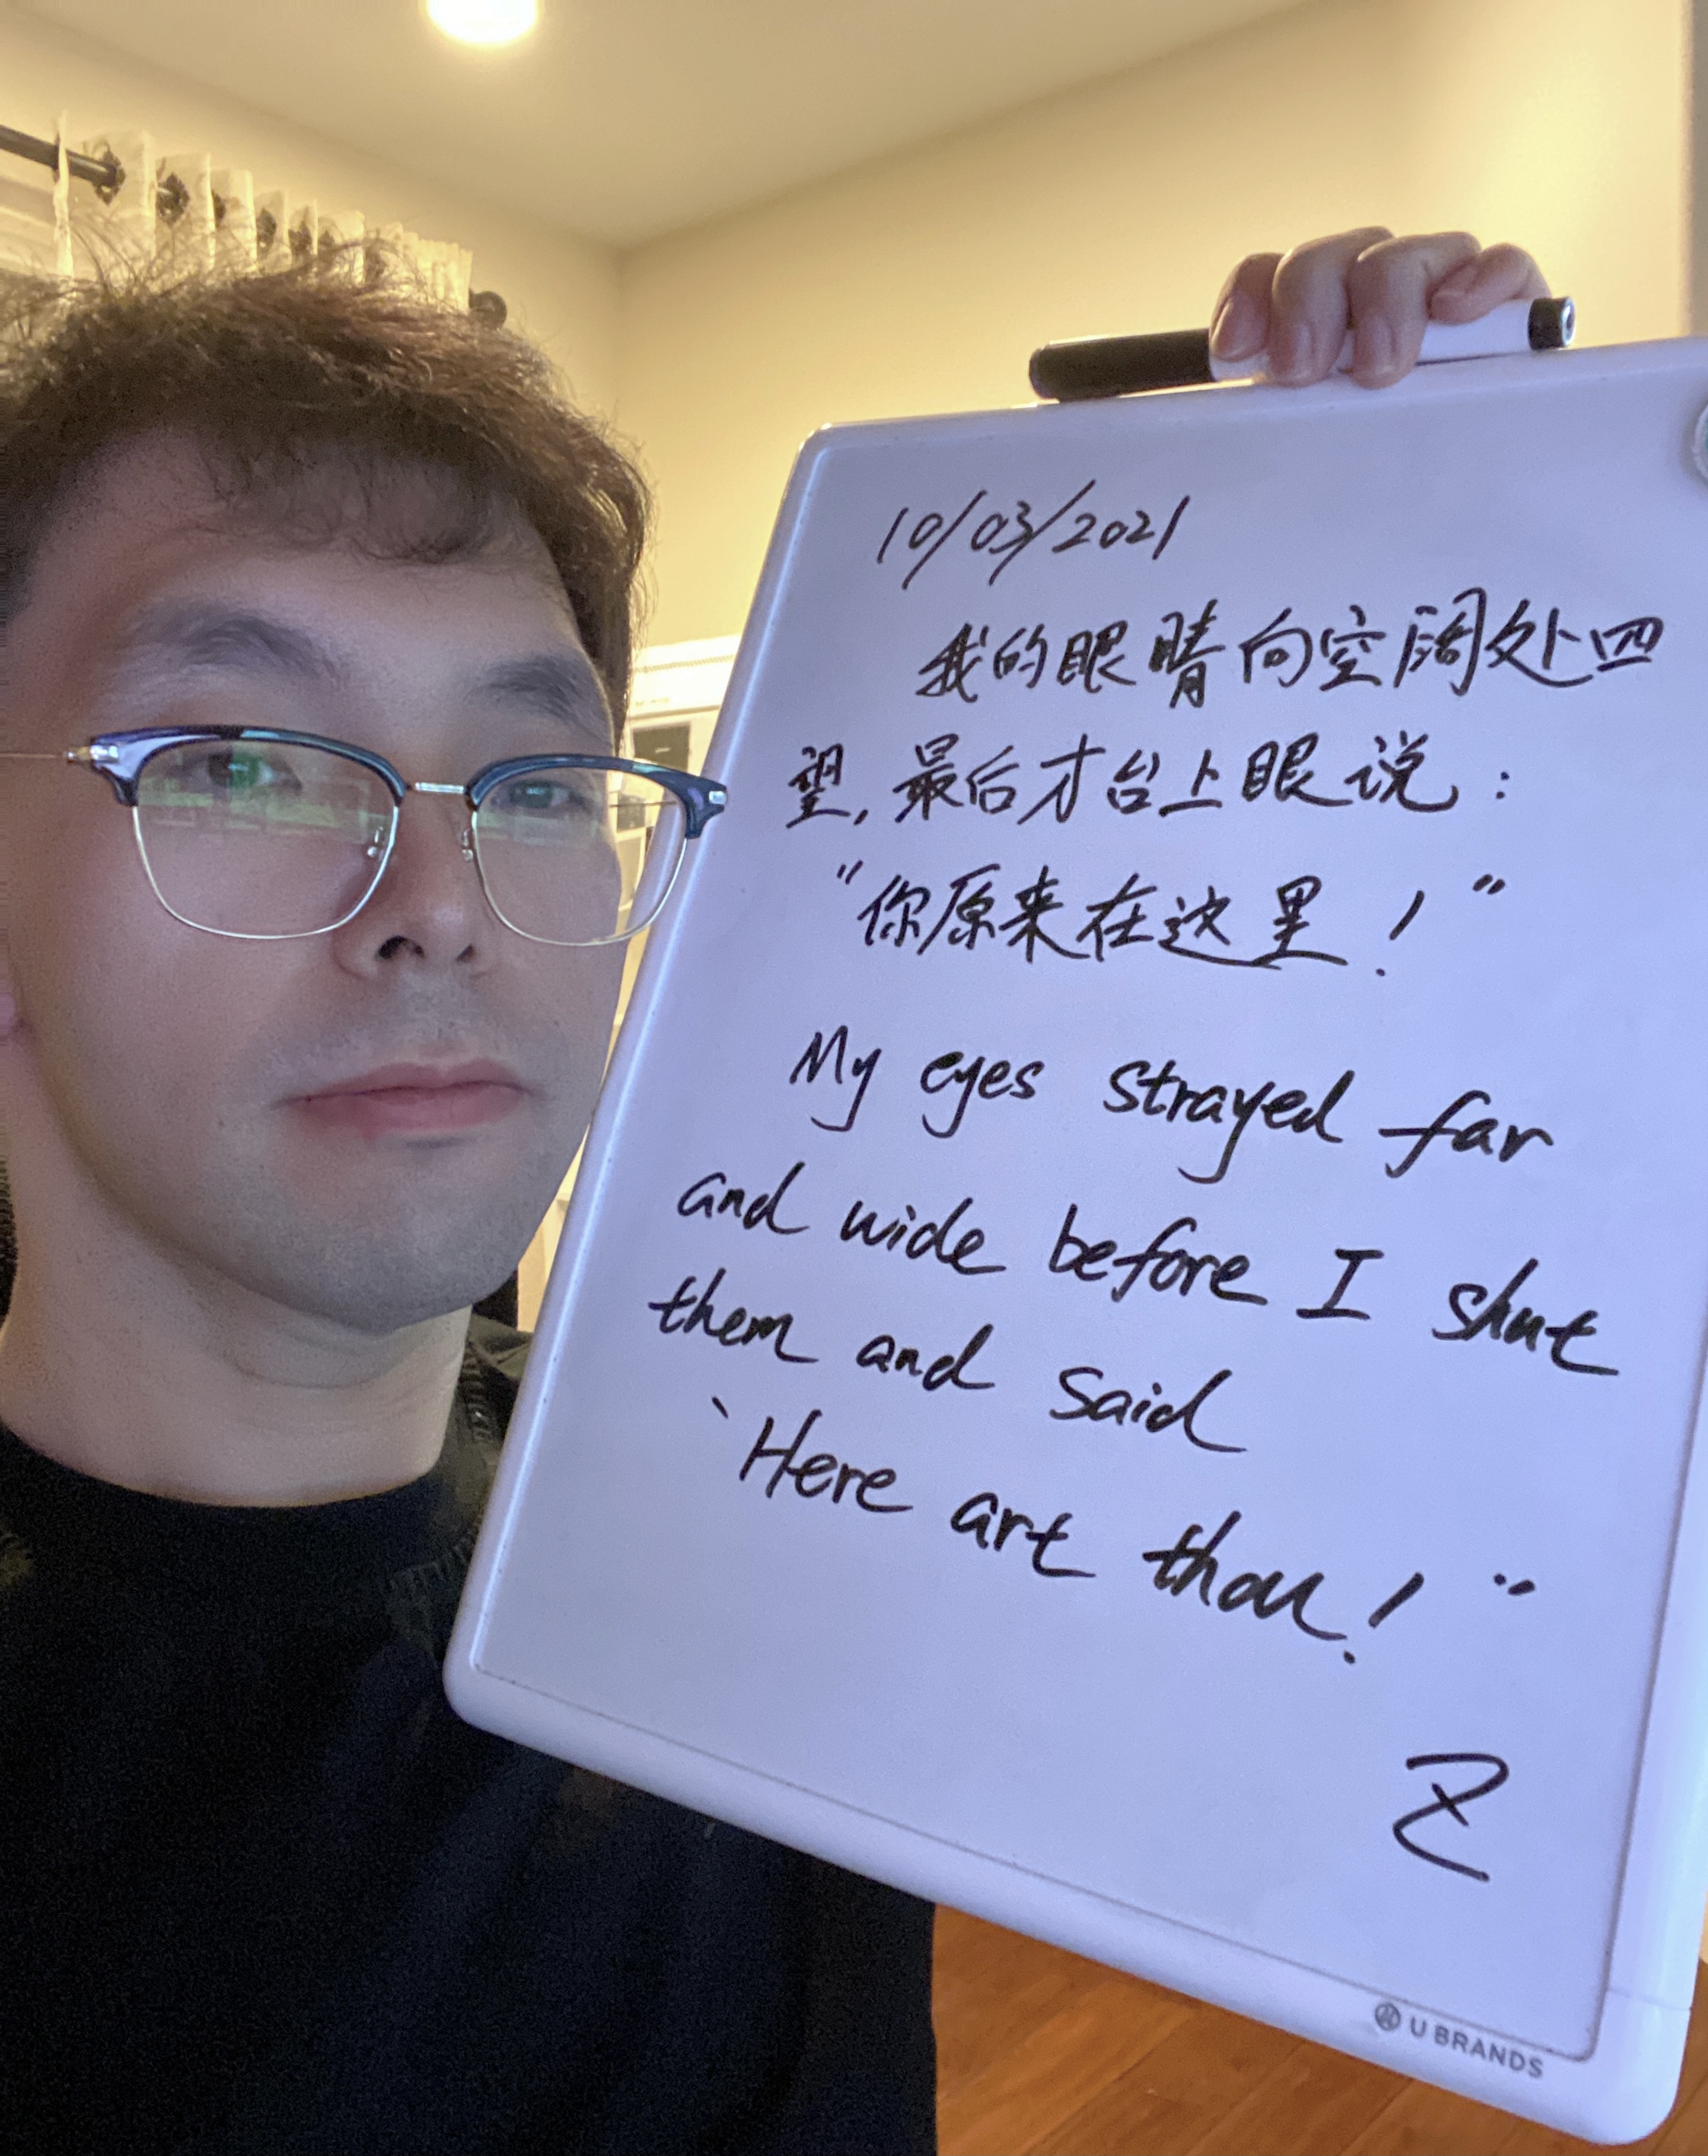 10/03/2021
我的眼睛向空阔处四
望,最后才台上眼说:
"你原来在这里!"
My eyes strayed far
and wide before I shut
them and said
`Here art thou!"
Z
U BRANDS